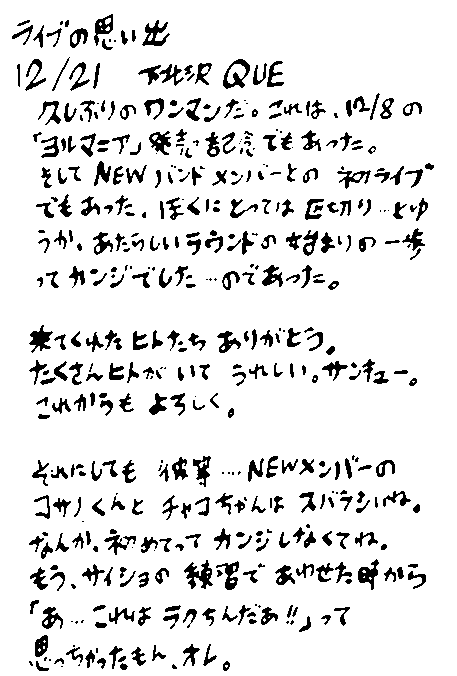 ライブの思い出
12/21 下北沢 QUE
久しぶりのワンマンだ。これは、12/8の
「ヨルマニア」発売記念でもあった。
そして NEW バンドメンバーとの 初ライブ
でもあった、ぼくにとっては区切り…とゆ
うか、あたらしいラウンドの始まりの一歩
ってカンジでした…のであった。
来てくれたヒトたち ありがとう。
たくさんヒトが いて うれしい。サンキュー。
これからも よろしく。
それにしても 彼等‥‥NEWメンバーの
コサノくんと チャコちゃんは スバラシいね。
なんか、初めてって カンジしなくてね。
もう、サイショの 練習で あわせた時から
「あ…これは ラクちんだぁ!!」って
思っちゃったもん、オレ。